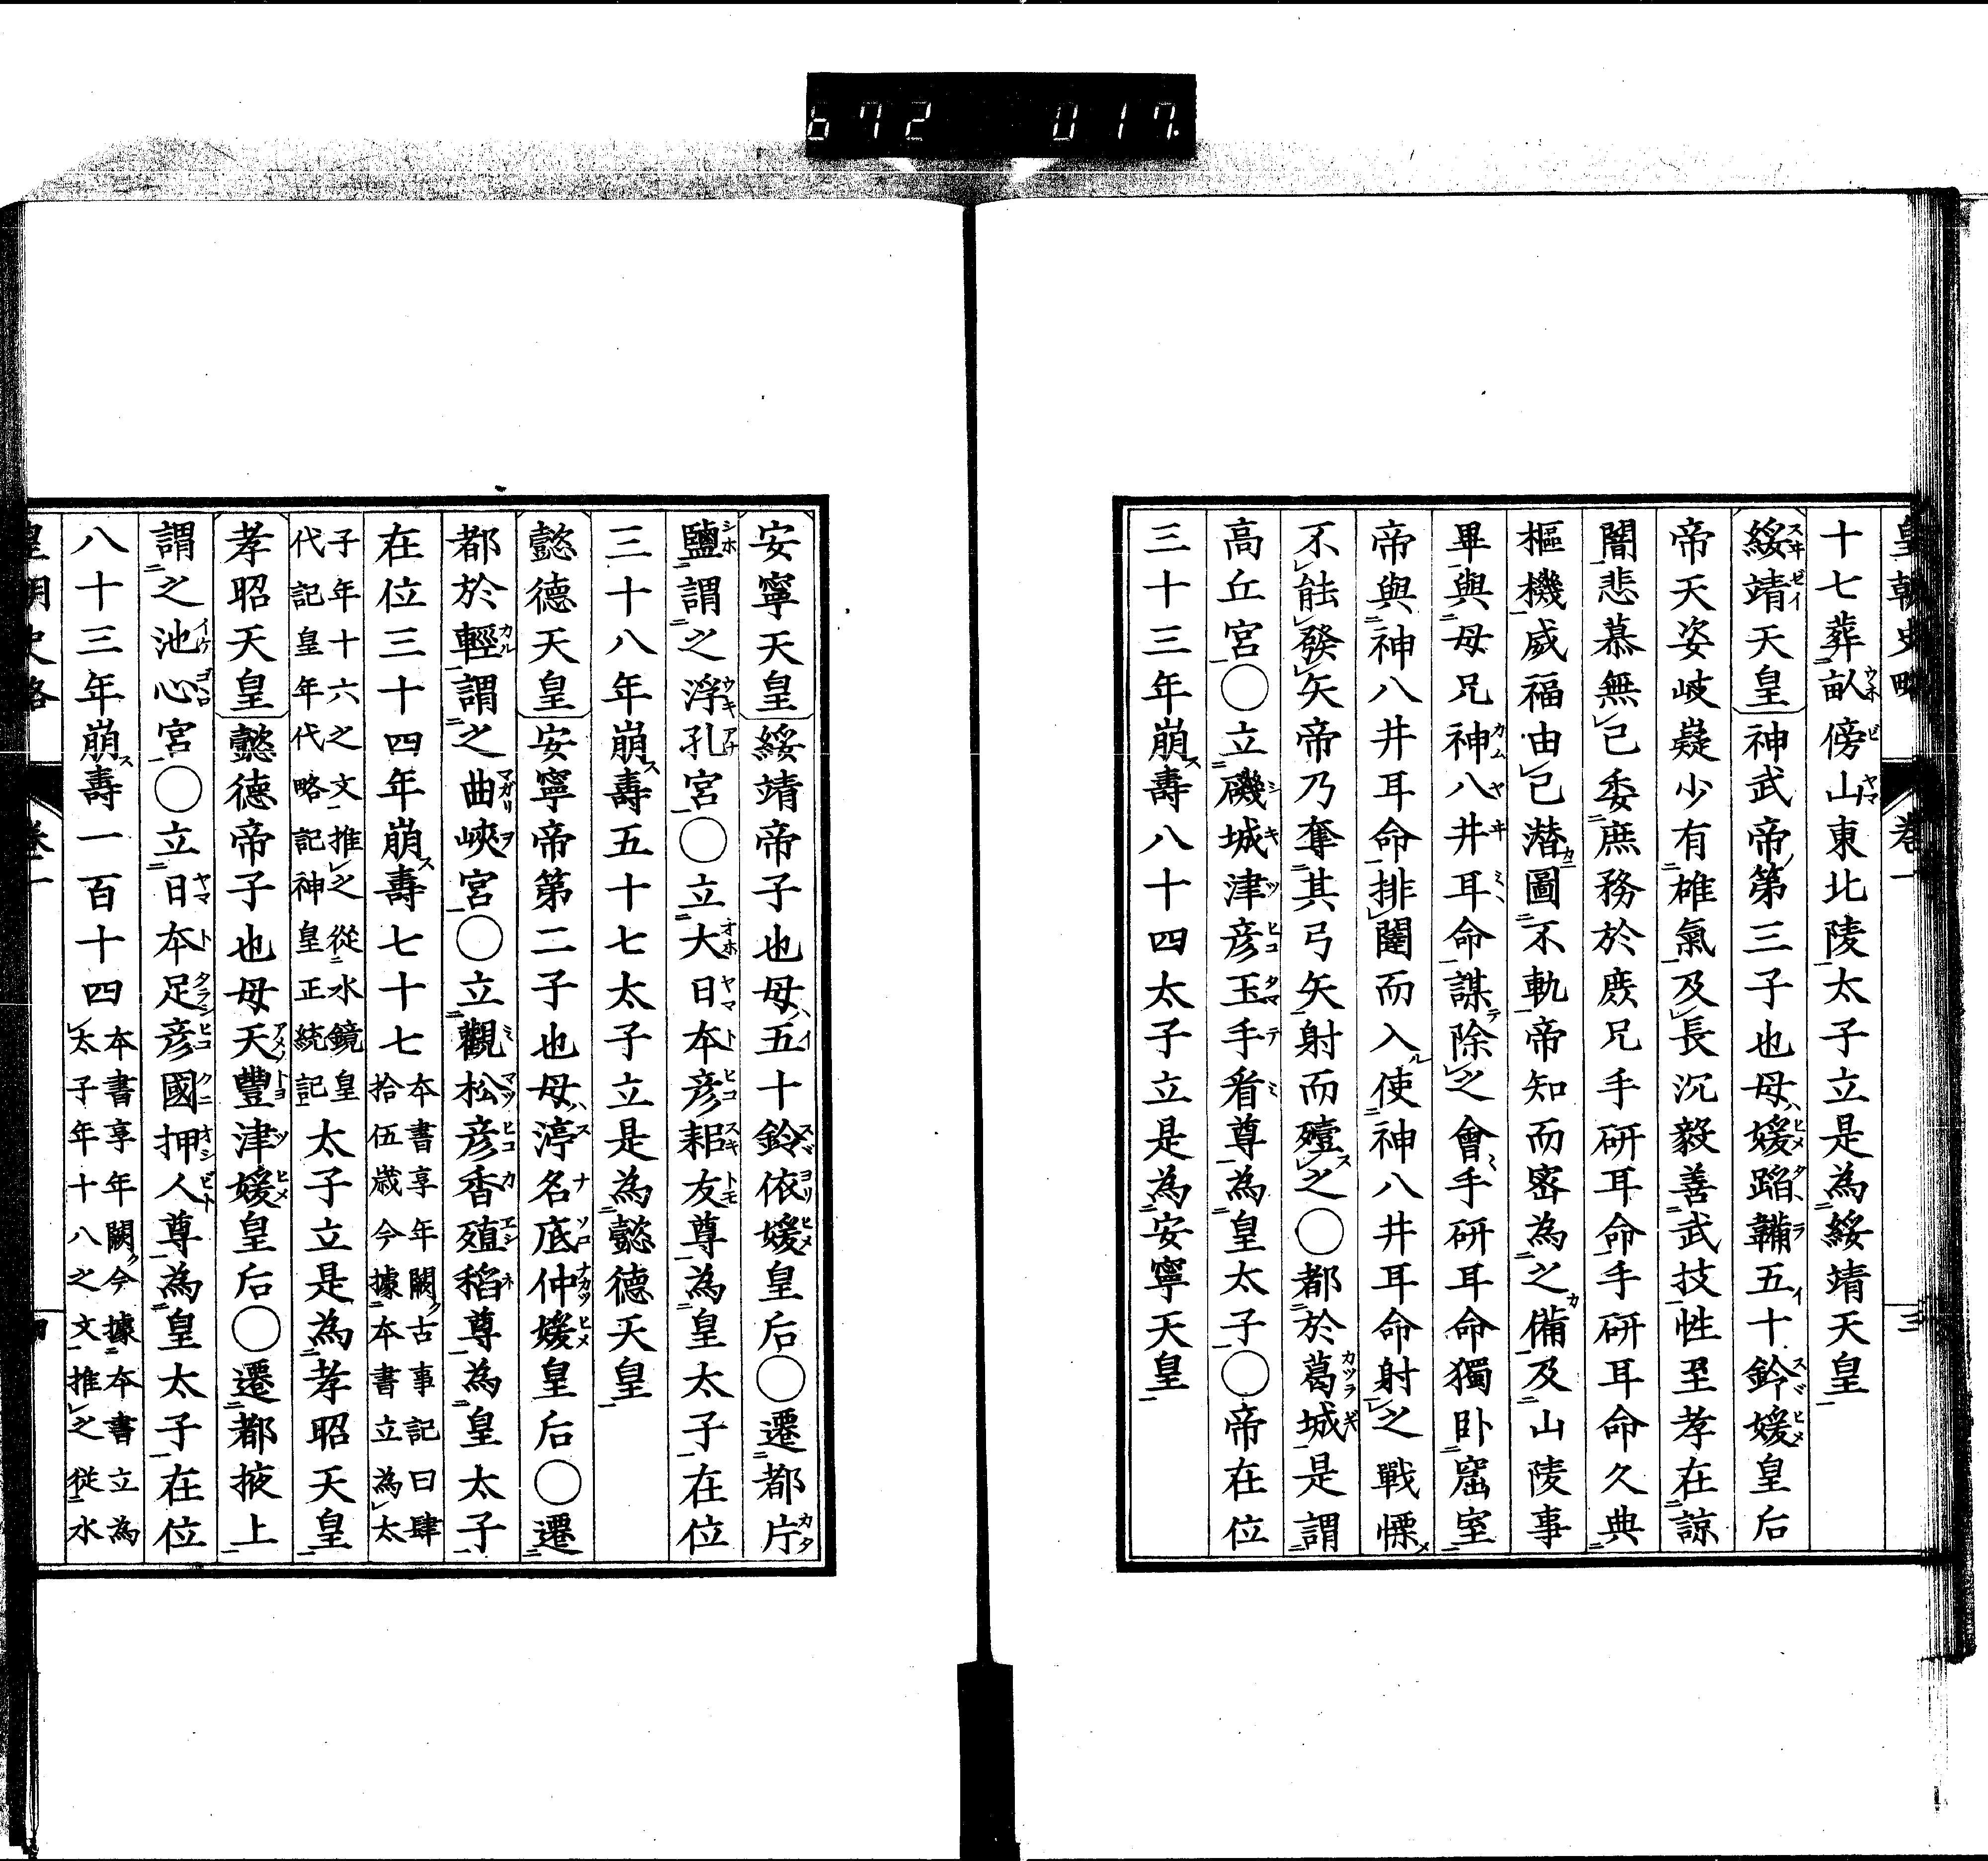 672 017
皇朝史略 卷一 三
十七葬畝傍山東北陵太子立是為綏靖天皇
綏靖天皇神武帝第三子也母媛蹈韛五十鈴媛皇后
帝天姿岐嶷少有雄氣及長沉毅善武技性至孝在諒
闇悲慕無已委庶務於庶兄手研耳命手研耳命久典
樞機威福由己潜圖不軌帝知而密為之備及山陵事
畢與母兄神八井耳命謀除之會手研耳命獨臥窟室
帝與神八井耳命排闥而入使神八井耳命射之戰慄
不能發矢帝乃奪其弓矢射而殪之○都於葛城是謂
高丘宮○立磯城津彦玉手看尊為皇太子○帝在位
三十三年崩壽八十四太子立是為安寧天皇
安寧天皇綏靖帝子也母五十鈴依媛皇后○遷都片
鹽謂之浮孔宮○立大日本彦耜友尊為皇太子在位
三十八年崩壽五十七太子立是為懿德天皇
懿德天皇安寧帝第二子也母渟名底仲媛皇后○遷
都於輕謂之曲峽宮○立觀松彦香殖稻尊為皇太子
在位三十四年崩壽七十七本書享年闕古事記曰肆拾伍歲今據本書立為太
子年十六之文推之從水鏡皇代記皇年代略記神皇正統記太子立是為孝昭天皇
孝昭天皇懿德帝子也母天豐津媛皇后○遷都掖上
謂之池心宮○立日本足彦國押人尊為皇太子在位
八十三年崩壽一百十四本書享年闕今據本書立為太子年十八之文推之從水
皇朝史略 卷一 四